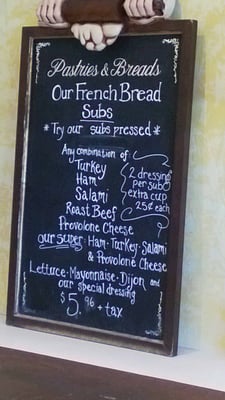 Pastries & Breads
Our French Bread
Subs
*Try our subs pressed*
Any combination of
Turkey
Ham
Salami
Roast Beef
Provolone Cheese
2 dressing
per sub
extra cup
25¢ each
our super: Ham-Turkey-Salami
& Provolone Cheese
Lettuce-Mayonnaise-Dijon and
our special dressing
$5.96 + tax